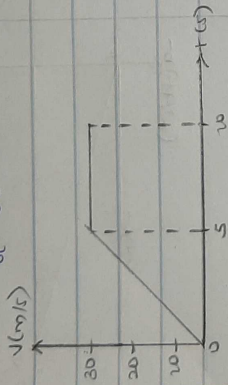 V(m/s)
30
20
10
0
5
20
t(s)